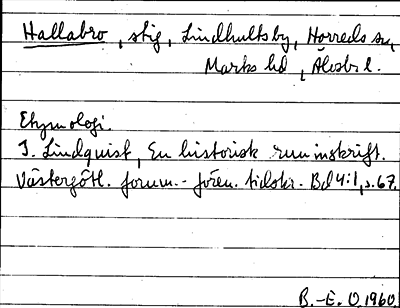 Hallabro, stig, Lindhultsby, Horreds sn,
Marks hd, Älvsb. l.
Etymologi.
I. Lindquist, En historisk runinskrift.
Västergötl. fornm.-fören. tidskr. Bd 4:1, s. 67.
B.-E. O. 1960